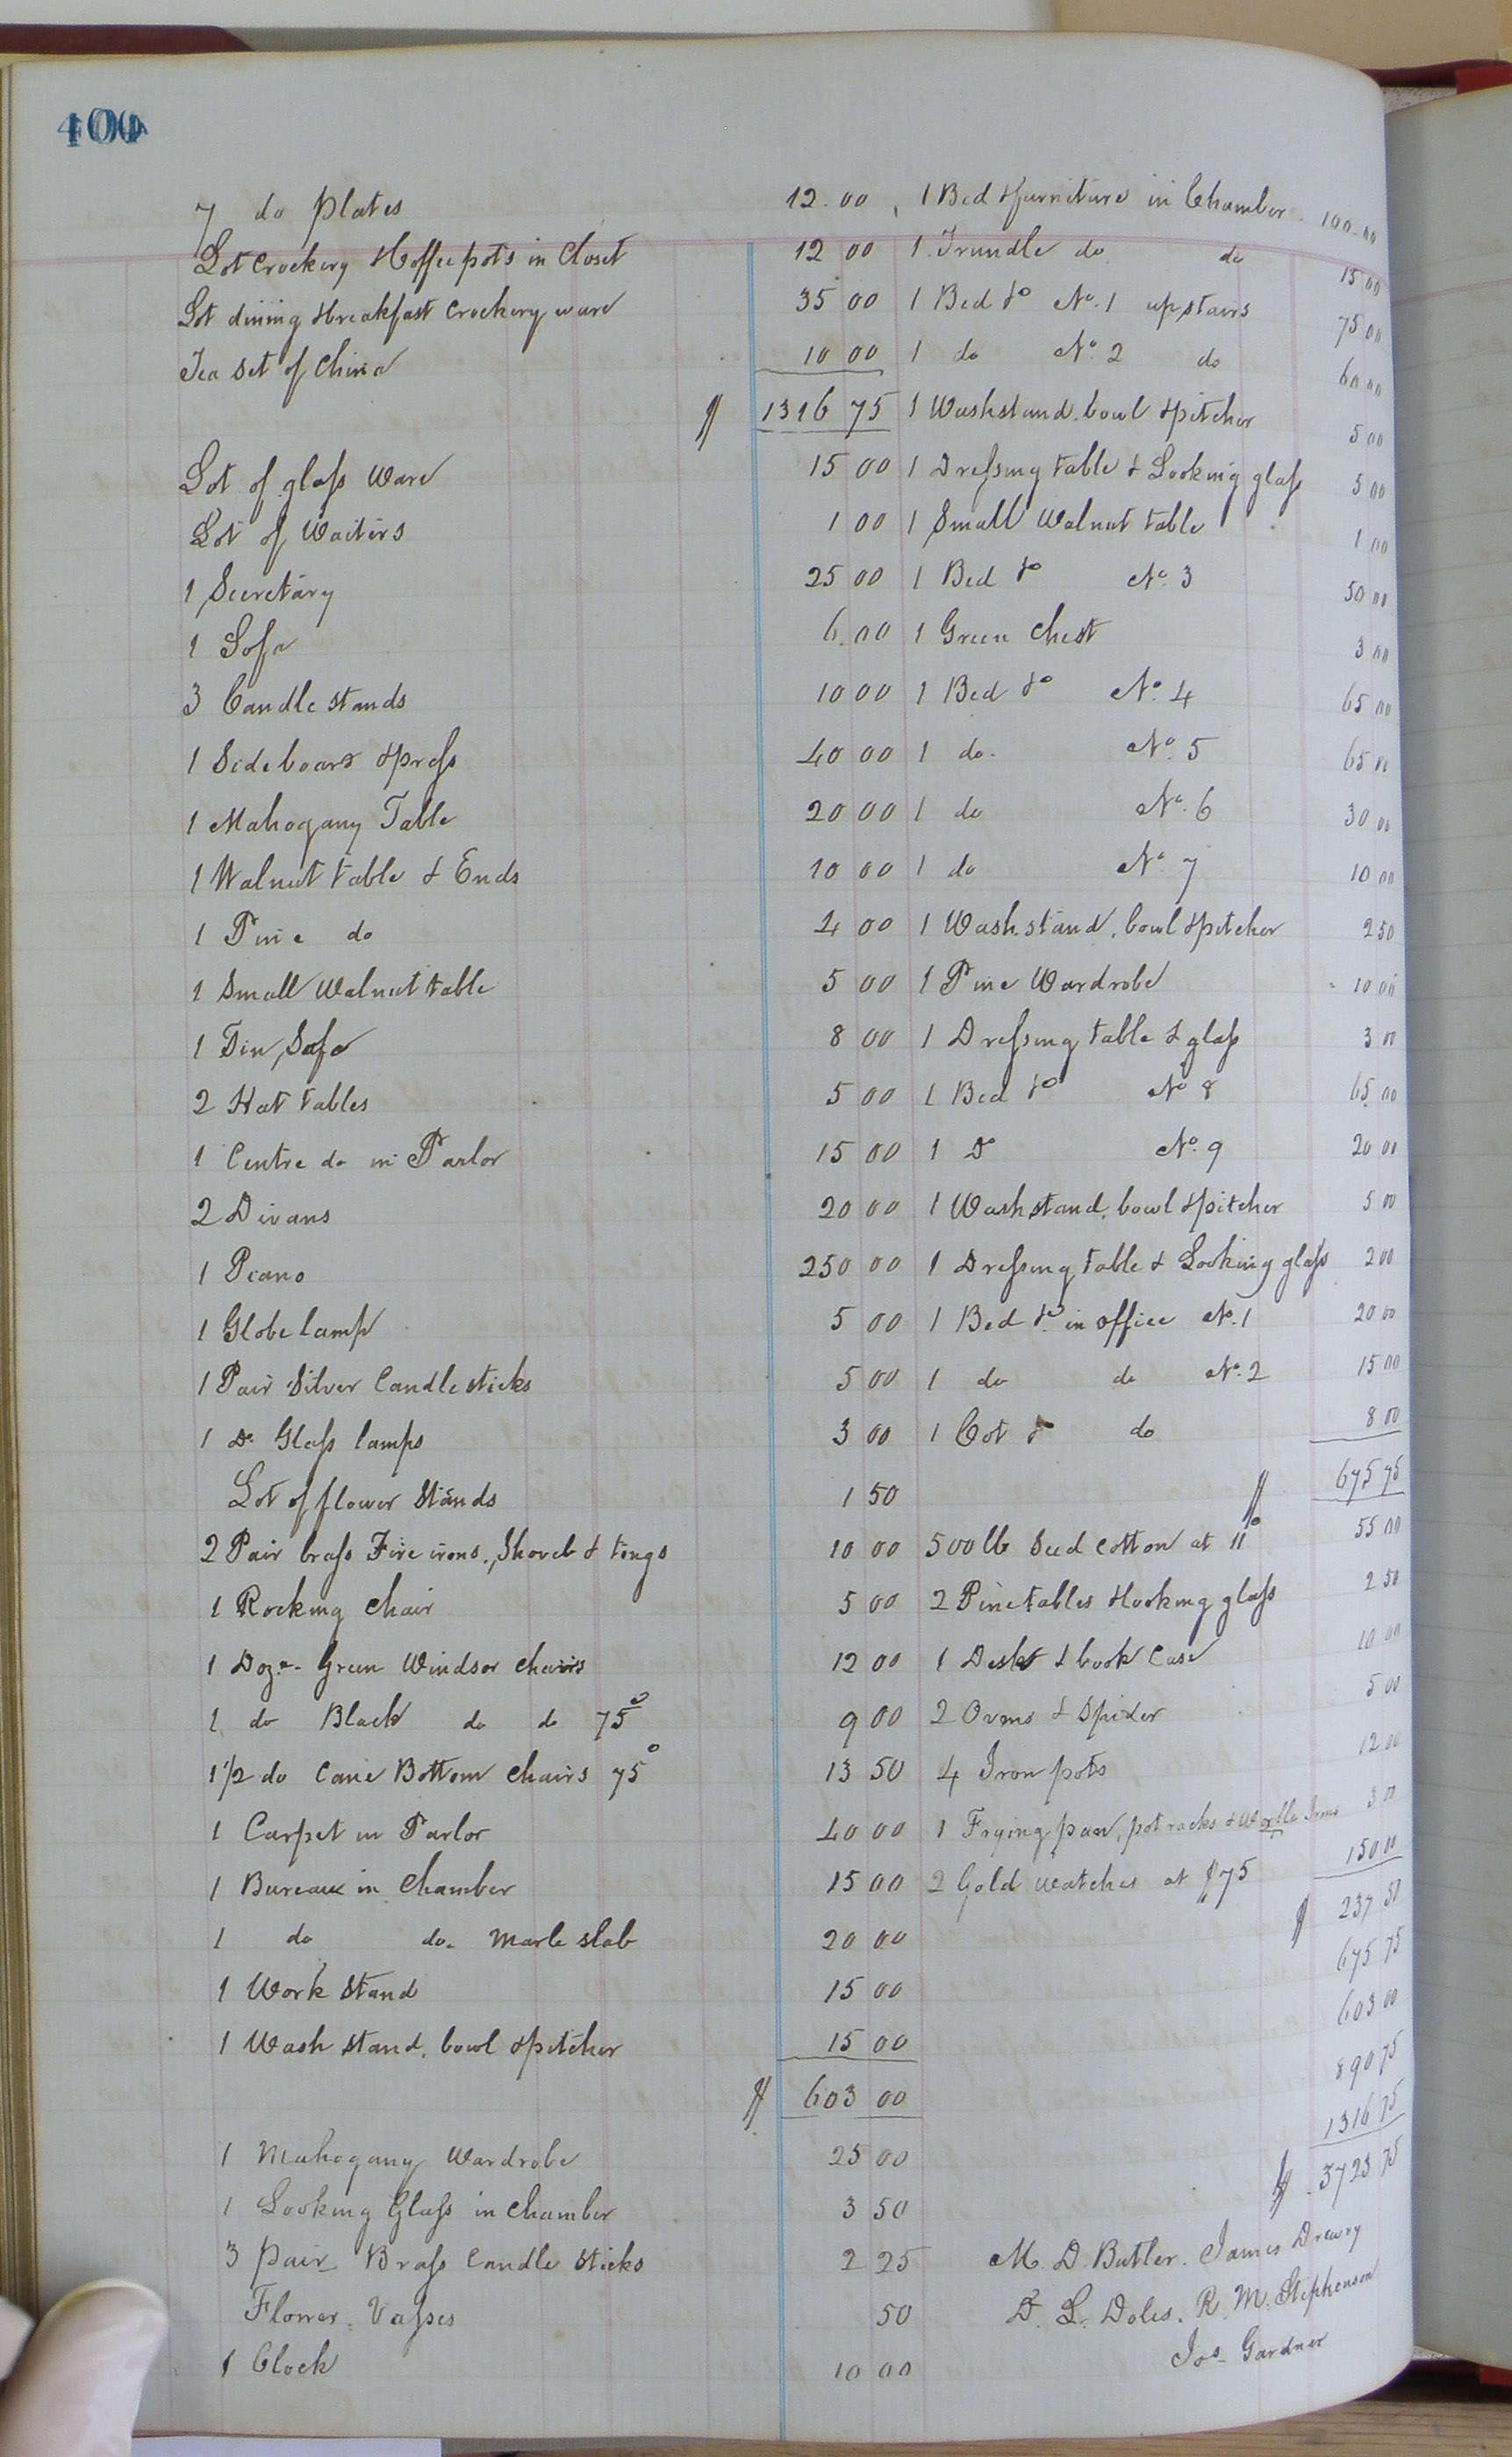 400
7 do Plates 12.00
Lot Crockery & Coffee pots in Closet 12 00
Lot dining & breakfast Crockery ware 35 00
Tea Set of China 10 00
$ 1316 75
Lot of glass Ware 15 00
Lot of Waiters 1 00
1 Secretary 25 00
1 Sofa 6.00
3 Candle stands 10 00
1 Sideboard & press 40 00
1 Mahogany Table 20 00
1 Walnut table & Ends 10 00
1 Pine do 4 00
1 Small Walnut table 5 00
1 Tin Safe 8 00
2 Hat tables 5 00
1 Centre do in Parlor 15 00
2 Divans 20 00
1 Piano 250 00
1 Globe lamp 5 00
1 Pair Silver Candlesticks 5 00
1 Do Glass lamps 3 00
Lot of flower Stands 1 50
2 Pair brass Fire irons., Shovel & tongs 10 00
1 Rocking Chair 5 00
1 Doz. Green Windsor chairs 12 00
1 do Black do do 75c 9 00
1 1/2 do Cane Bottom Chairs 75c 13 50
1 Carpet in Parlor 40 00
1 Bureau in Chamber 15 00
1 do do. Marle slab 20 00
1 Work Stand 15 00
1 Wash stand, bowl & pitcher 15 00
$ 603 00
1 Mahogany Wardrobe 25 00
1 Looking Glass in Chamber 3 50
3 Pair Brass Candle Sticks 2 25
Flower Vasses 50
1 Clock 10 00
1 Bed & furniture in Chamber. 100.00
1 Trundle do. do 15 00
1 Bed &c No. 1 up stairs 75 00
1 do No. 2 do 60 00
1 Washstand. bowl & pitcher 5 00
1 Dressing table & Looking glass 5 00
1 Small Walnut table 1 00
1 Bed &c No. 3 50 00
1 Green Chest 3 00
1 Bed &c No. 4 65 00
1 do. No. 5 65 00
1 do No. 6 30 00
1 do No. 7 10 00
1 Wash.stand, bowl & pitcher 2 50
1 Pine Wardrobe 10 00
1 Dressing table & glass 3 00
1 Bed &c No 8 65.00
1 Do No. 9 20 00
1 Wash stand, bowl & pitcher 5 00
1 Dressing table & Looking glass 2 00
1 Bed &c in office No. 1 20 00
1 do do No. 2 15 00
1 Cot &c do 8 00
$ 675 75
500 lb Seed Cotton at 11c 55 00
2 Pine tables & looking glass 2 50
1 Desk & book Case 10 00
2 Ovens & Spider 5 00
4 Iron pots 12 00
1 Frying pan, pot racks & Waffle Irons 3 00
2 Gold watches at $75 150 00
$ 237 50
675 75
603 00
890 75
1316 75
$ 3723 75
M. D. Butler. James Drewry
D. L. Doles. R. M. Stephenson
Jos. Gardner